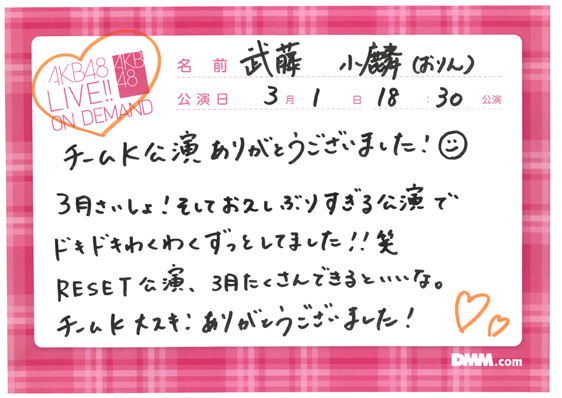 AKB48
LIVE!!
ON DEMAND
AKB
48
名前 武藤 小麟(おりん)
公演日 3月1日 18:30公演
チームK公演ありがとうございました!
3月さいしょ!そしておひさしぶりすぎる公演で
ドキドキわくわくずっとしてました!!笑
RESET公演、3月たくさんできるといいな。
チームK大スキ!ありがとうございました!
DMM.com